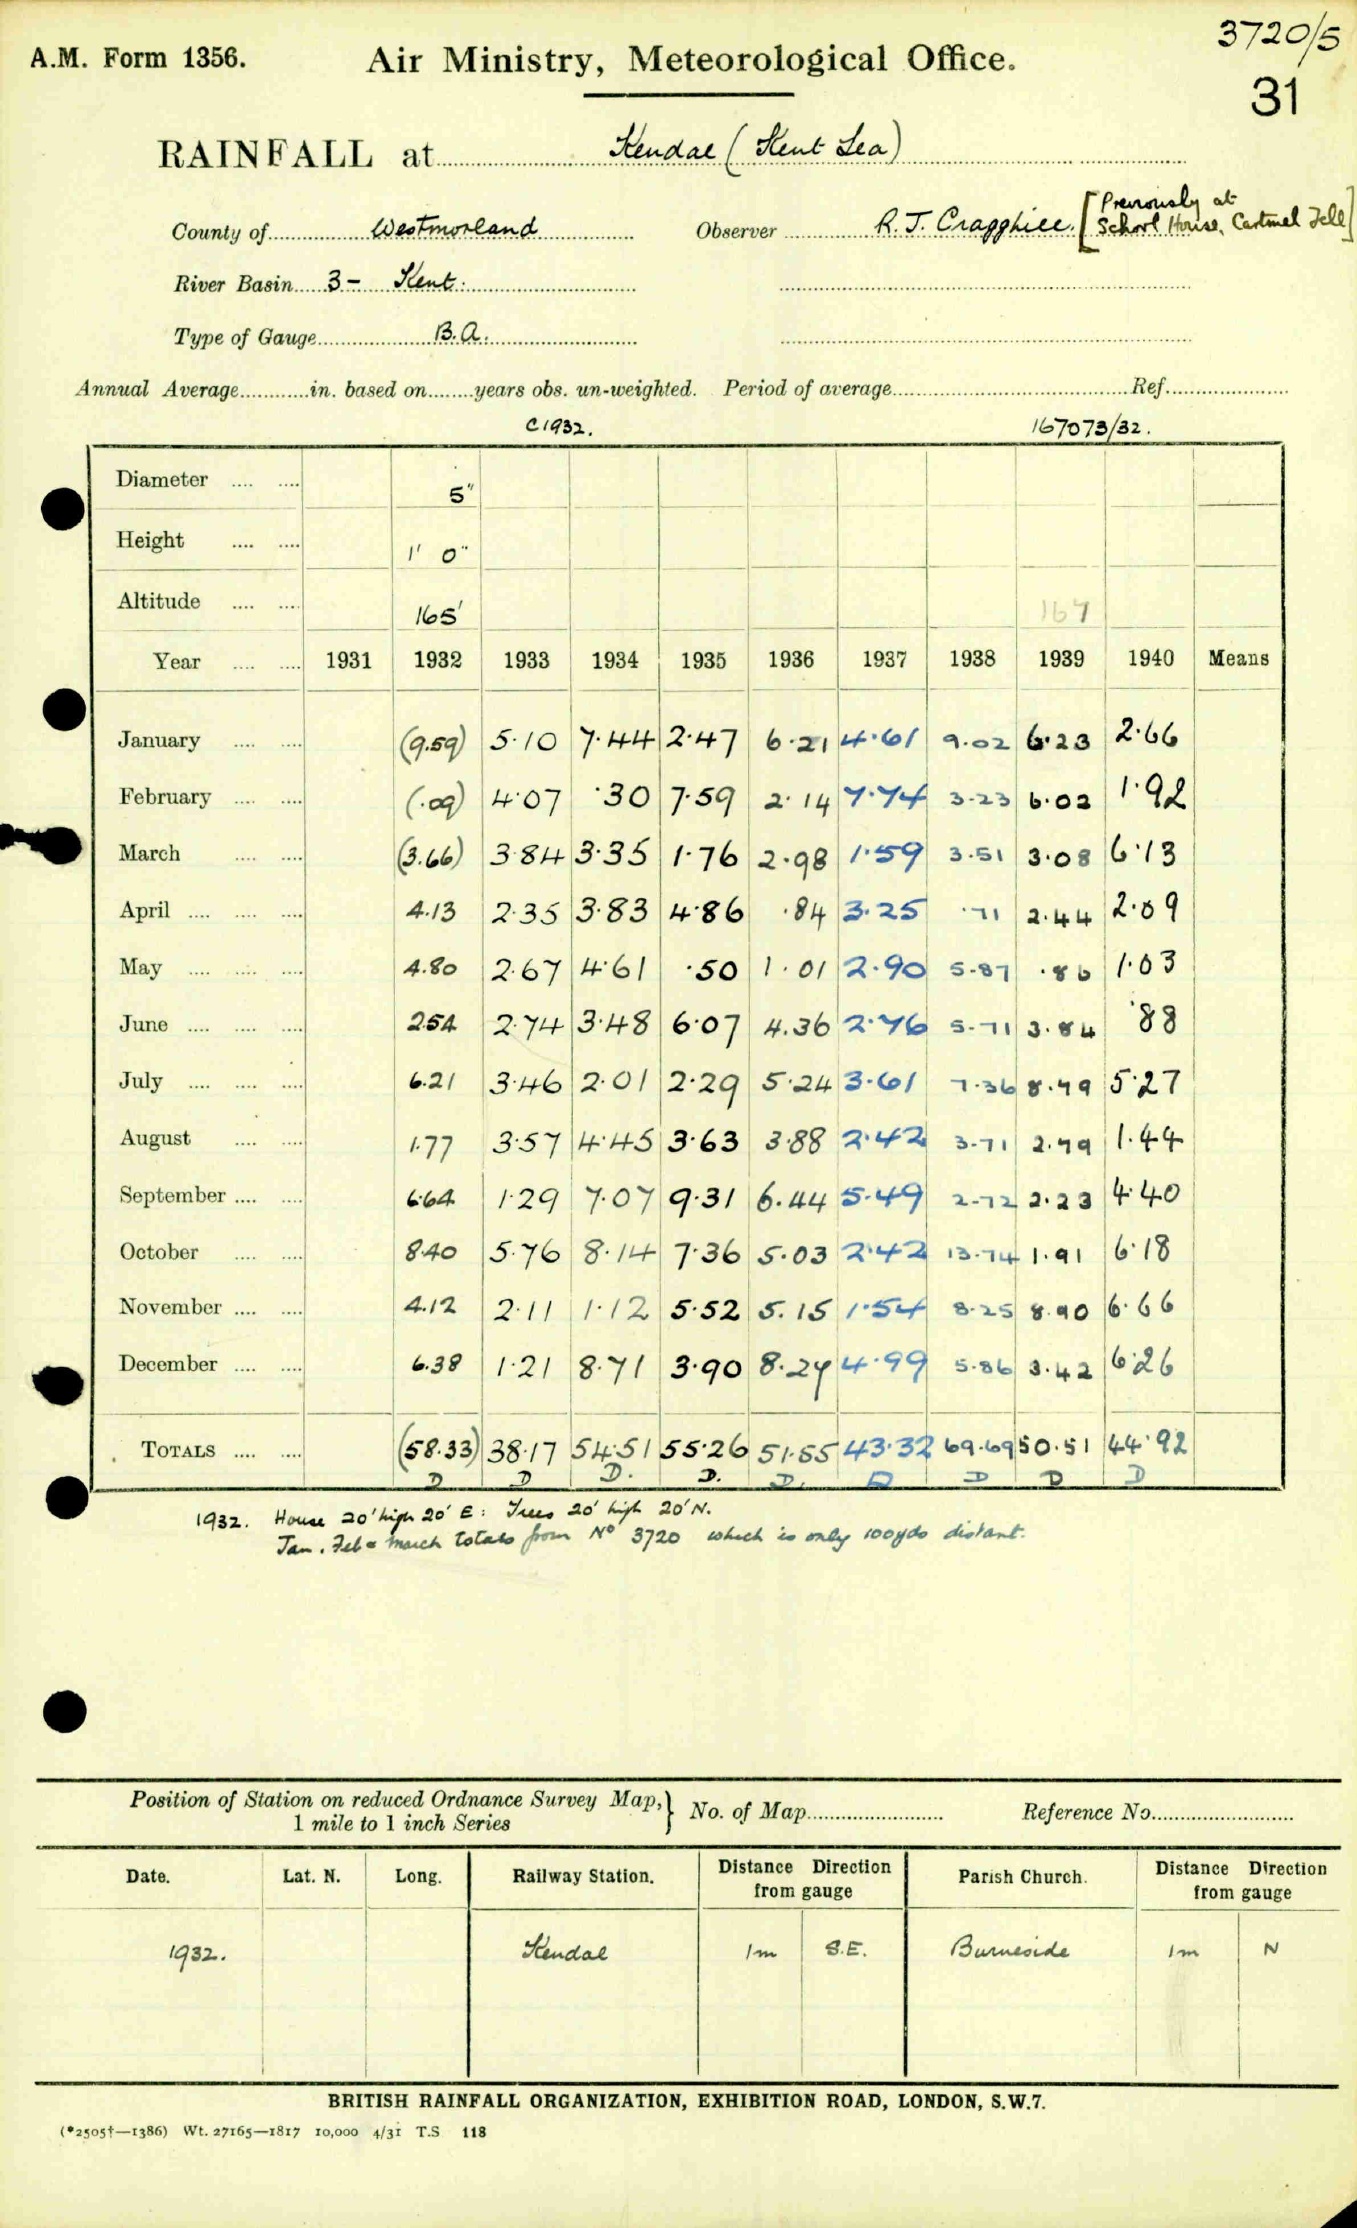 3720/5
A.M. Form 1356. Air Ministry, Meteorological Office.
31
RAINFALL at Kendal (Kent Lea)
County of Westmorland Observer R. J. Cragghill. [Previously at
School House, Cartmel Fell]
River Basin 3- Kent.
Type of Gauge B.A.
Annual Average in. based on years obs. un-weighted. Period of average Ref.
C1932. 167073/32.
Diameter 5"
Height 1' 0"
Altitude 165' 167
Year 1931 1932 1933 1934 1935 1936 1937 1938 1939 1940 Means
January (9.59) 5.10 7.44 2.47 6.21 4.61 9.02 6.23 2.66
February (.09) 4.07 .30 7.59 2.14 7.74 3.23 6.02 1.92
March (3.66) 3.84 3.35 1.76 2.98 1.59 3.51 3.08 6.13
April 4.13 2.35 3.83 4.86 .84 3.25 .71 2.44 2.09
May 4.80 2.67 4.61 .50 1.01 2.90 5.87 .86 1.03
June 2.54 2.74 3.48 6.07 4.36 2.76 5.71 3.84 .88
July 6.21 3.46 2.01 2.29 5.24 3.61 7.36 8.79 5.27
August 1.77 3.57 4.45 3.63 3.88 2.42 3.71 2.79 1.44
September 6.64 1.29 7.07 9.31 6.44 5.49 2.72 2.23 4.40
October 8.40 5.76 8.14 7.36 5.03 2.42 13.74 1.91 6.18
November 4.12 2.11 1.12 5.52 5.15 1.54 8.25 8.90 6.66
December 6.38 1.21 8.71 3.90 8.27 4.99 5.86 3.42 6.26
TOTALS (58.33) 38.17 54.51 55.26 51.55 43.32 69.69 50.51 44.92
D D D. D. D. D D D D
1932. House 20' high 20' E: Trees 20' high 20' N.
Jan. Feb & March totals from No 3720 which is only 100yds distant.
Position of Station on reduced Ordnance Survey Map,} No. of Map Reference No.
1 mile to 1 inch Series
Date. Lat. N. Long. Railway Station. Distance Direction Parish Church. Distance Direction
from gauge from gauge
1932. Kendal 1m S.E. Burneside 1m N
BRITISH RAINFALL ORGANIZATION, EXHIBITION ROAD, LONDON, S.W.7.
(*2505†—1386) Wt. 27165—1817 10,000 4/31 T.S 118